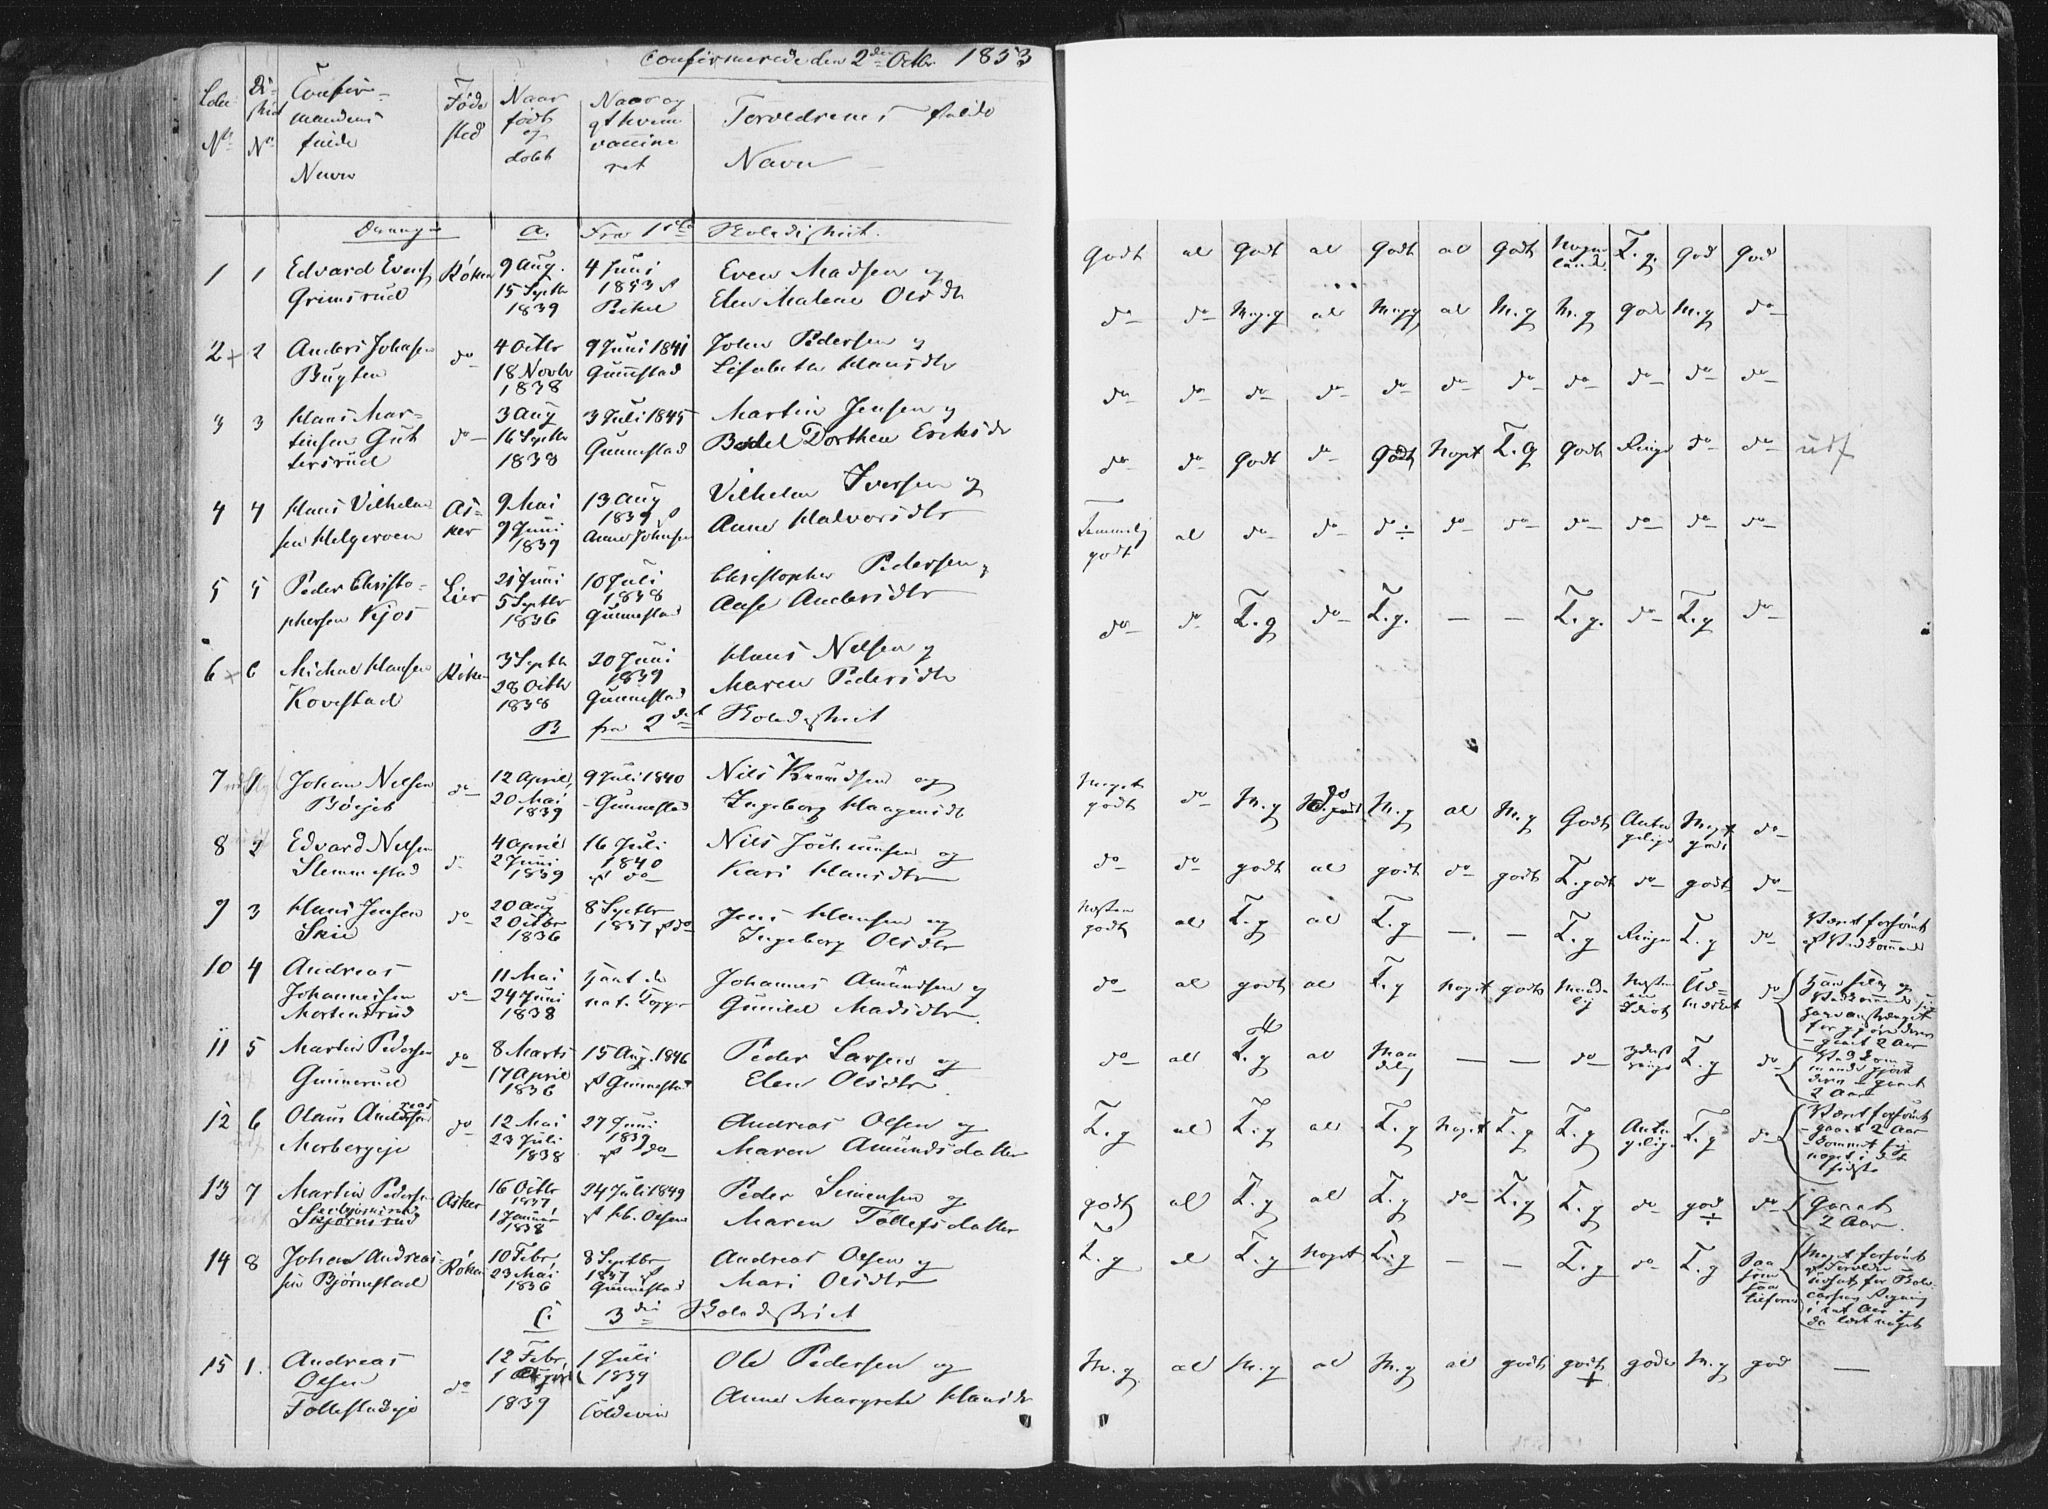 Confirmerede den 2den Octbr 1853
Løbe No
Di-strict No
Confir-mandens fulde Navn
Føde sted
Naar født og døbt
Naar og af hvem vaccineret
Forældrenes fulde Navn
Drenge A. Fra 1ste Skoledistrict.
1 1 Edvard Evens. Grimsrud Røken 9 Aug. 15 Septbr 1839 4 Juni 1853 af Even Madsen og Elen Malene Olsdtr
Godt al Godt al Godt al Godt T.g. God God
2 2 Anders Johnsen Bugten do 4 Octbr 18 Novbr 1838 9 Juni 1841 Gunnestad John Pedersen og Lisabeth Hansdtr
do do Meg.g al Meg.g al M.g M.g God M.g do
3 3 Hans Mar-tinsen Gut-tersrud do 3 Aug 16 Septbr 1838 3 Juli 1845 Gunnestad Martin Jensen og Bodel Dorthea Ericksdr
do do do do do do do do do do do
4 4 Hans Vilhelm-sen Helgeroen As-ker 9 Mai 9 Juni 1839 13 Aug 1839 af Anne Johnsen Vilhelm Iversen og Anne Halvorsdtr
do do Godt do Godt Noget T.g Godt Ringe do do udf
5 5 Peder Christo-phersen Kjos Lier 21 Juni 5 Septbr 1836 10 Juli 1838 Gunnestad Christopher Pedersen og Aase Andersdtr
Temmelig godt al do do do ÷ do do do do do do
6 6 Michael Hansen Kovestad Røken 3 Septbr 28 Octbr 1838 20 Juni 1839 Gunnestad Hans Nelsen og Maren Pedersdtr
do do T.g do T.g. — — T.g. do T.g do
B fra 2det Skoledistrict
7 1 Johan Nelsen do 12 April, 20 Mai 1839 9 Juli 1840 Gunnestad Nils Knudsen og Ingeborg Haagensdt
Meget godt do M.g M.g al M.g Godt Meget godt do
8 2 Edvard Nelsen Slemmestad do 4 April 2 Juni 1839 16 Juli 1840 af do Nils Jochumsen og Kari Hansdtr
do do godt al godt do godt T.godt do godt do
9 3 Hans Jensen Skie do 20 Aug 2 Octbr 1836 8 Septbr 1837 af do Jens Hansen og Ingeborg Olsdtr
Næsten godt al T.g al T.g — — T.g Ringe T.g do Været forsømt af Vedkommende
10 4 Andreas Johannessen Mortensrud do 11 Mai 24 Juni 1838 havt de nat. Kopper Johannes Amundsen og Gunild Madsdtr.
do al godt al T.g Noget godt Maadelig Næsten en Idiot Ud-mærket do
11 5 Martin Pedersen Gunnerud do 8 Marts 17 April 1836 15 Aug. 1846 af Gunnestad Peder Larsen og Elen Olsdtr
do al T.g al Maadelig — — do yderst ringe T.g do
12 6 Olaus Andreassen Morbergeje do 12 Mai 23 Juli 1838 27 Juni 1839 af do Andreas Olsen og Maren Amundsdatter
T.g al T.g al T.g Noget T.g T.g T.g do Været forsømt – gaaet 2 Aar
13 7 Martin Pedersen Skjørnsrud Asker 16 Octbr 1837 1 Januar 1838 24 Juli 1849 af Hb. Olsen Peder Simensen og Maren Tollefsdatter
godt al T.g al T.g do T.g T.g do god ÷ do Gaaet 2 Aar.
14 8 Johan Andreas-sen Bjørnstad Røken 10 Febr, 23 Mai 1836 8 Septbr 1837 af Gunnestad Andreas Olsen og Mari Olsdtr
T.g al T.g Noget T.g — — T.g do T.g Saa som saa tilforn
C. 3die Skoledistrict
15 1. Andreas Olsen Follestadeje do 12 Febr, 1 1839 1 Juli 1839 af Coldevin Ole Pedersen og Anne Margrete Hansdr
M.g al M.g al M.g al godt godt + goder M.g god —